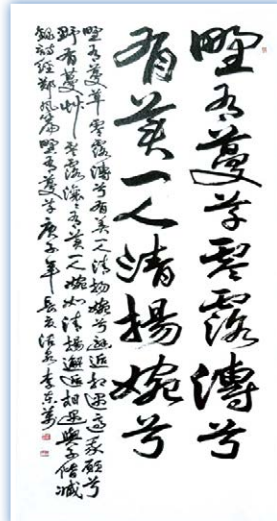 野有蔓草零露漙兮
有美一人清揚婉兮
野有蔓草零露漙兮有美一人清揚婉兮邂逅相遇適我願兮
野有蔓艸零露瀼瀼有美一人婉如清揚邂逅相遇與子偕臧
錄詩經鄭風篇野有蔓草庚子年長安